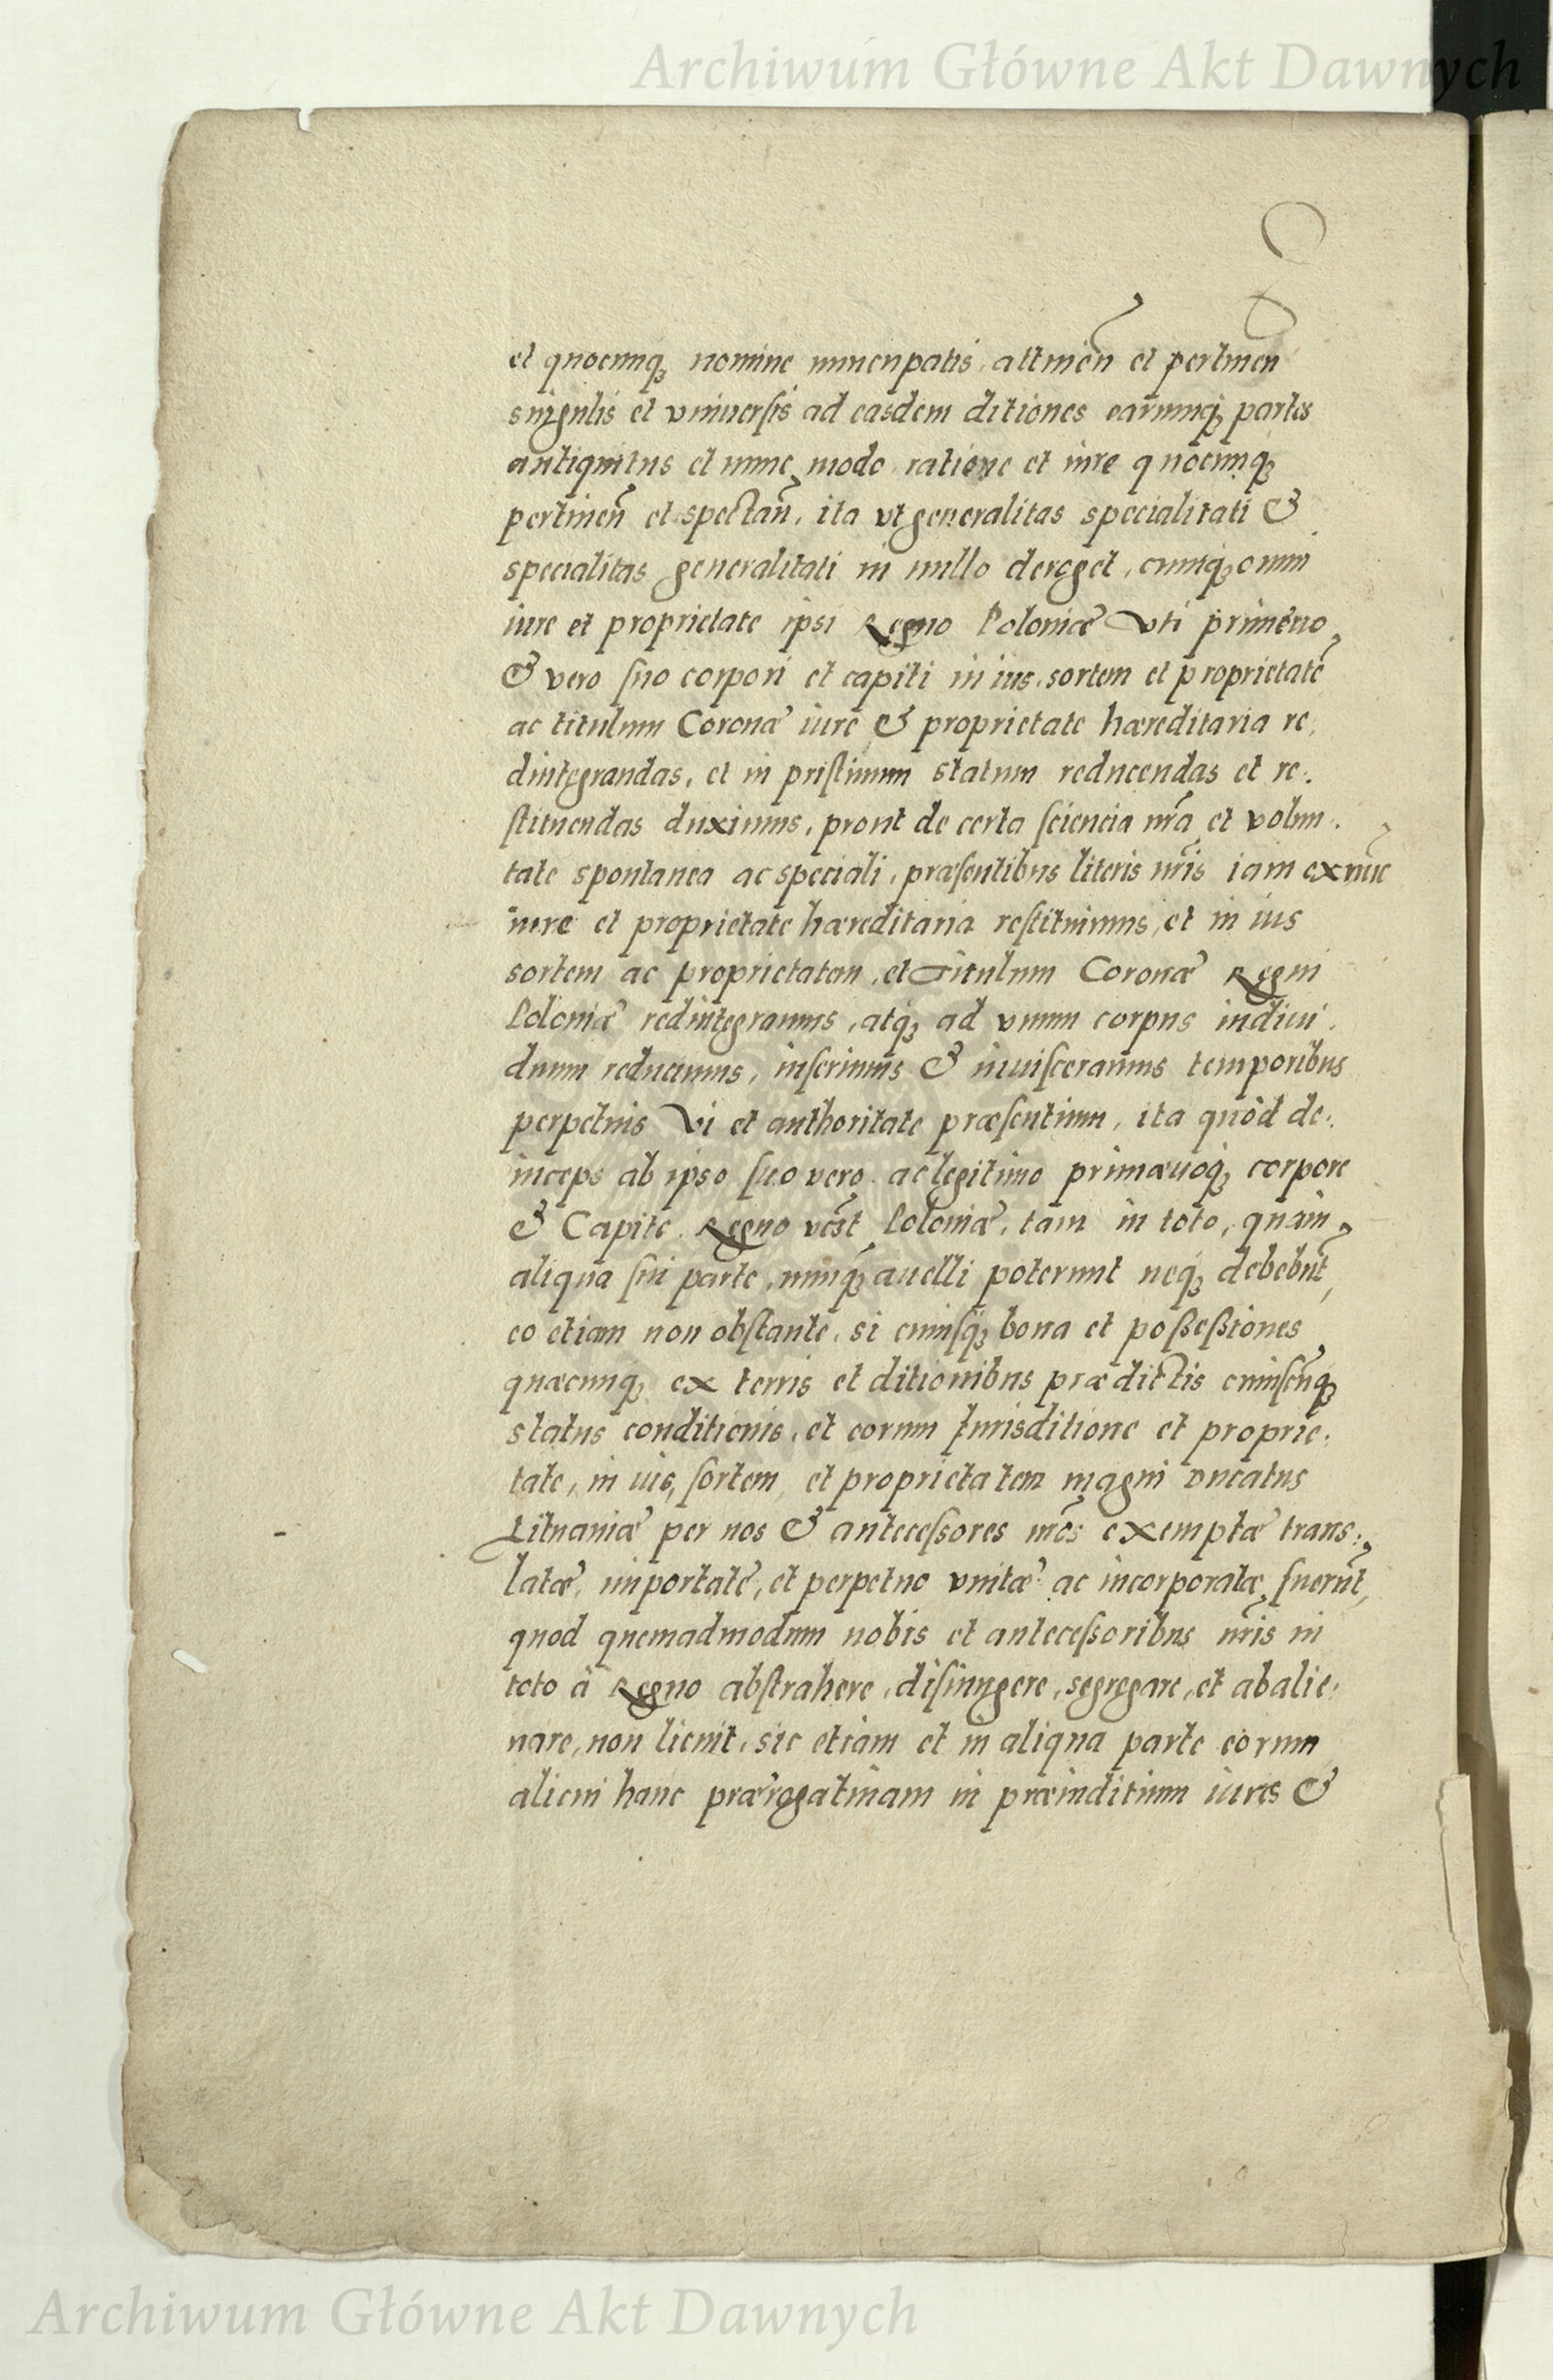 Archiwum Główne Akt Dawnych
et quocunq₃ nomine nuncupatis, attineñ et pertineñ
singulis et vniuersis ad easdem ditiones earumq₃ partes
antiquitus et nunc modo ratione et iure quocunq₃
pertineñ et spectañ, ita vt generalitas specialitati &
specialitas generalitati in nullo deroget, cumq₃ omni
iure et proprietate ipsi Regno Poloniæ vti primæuo
& vero suo corpori et capiti in ius, sortem et proprietatē
ac titulum Coronæ iure & proprietate hæreditaria re,
dintegrandas, et in pristinum statum reducendas et re:
stituendas duximus, prout de certa sciencia nr̃a et volun:
tate spontanea ac speciali, præsentibus literis nr̃is iam ex nūc
iure et proprietate hæreditaria restituimus, et in ius
sortem ac proprietatem, et Titulum Coronæ Regni
Poloniæ redintegramus, atq₃ ad vnum corpus indiui:
duum reducimus, inserimus & inuisceramus temporibus
perpetuis vi et authoritate præsentium, ita quòd de:
inceps ab ipso suo vero ac legitimo primæuoq₃ corpore
& Capite Regno vest Poloniæ, tam in toto, quàm
aliqua sui parte, nunq₃ auelli poterunt neq₃ debebūt,
eo etiam non obstante, si cuiusq₃ bona et possessiones
quæcunq₃ ex terris et ditionibus prædictis cuiuscūq₃
status conditionis, et eorum Jurisditione et proprie:
tate, in ius, sortem, et proprietatem magni Ducatus
Lituaniæ per nos & antecessores nr̃os exemptæ trans:
latæ, importatæ, et perpetuo vnitæ ac incorporatæ fuerūt,
quod quemadmodum nobis et antecessoribus nr̃is in
toto à Regno abstrahere, disiungere, segregare, et abalie:
nare, non licuit, sic etiam et in aliqua parte eorum
alicui hanc prærogatiuam in præiuditium iuris &
Archiwum Główne Akt Dawnych